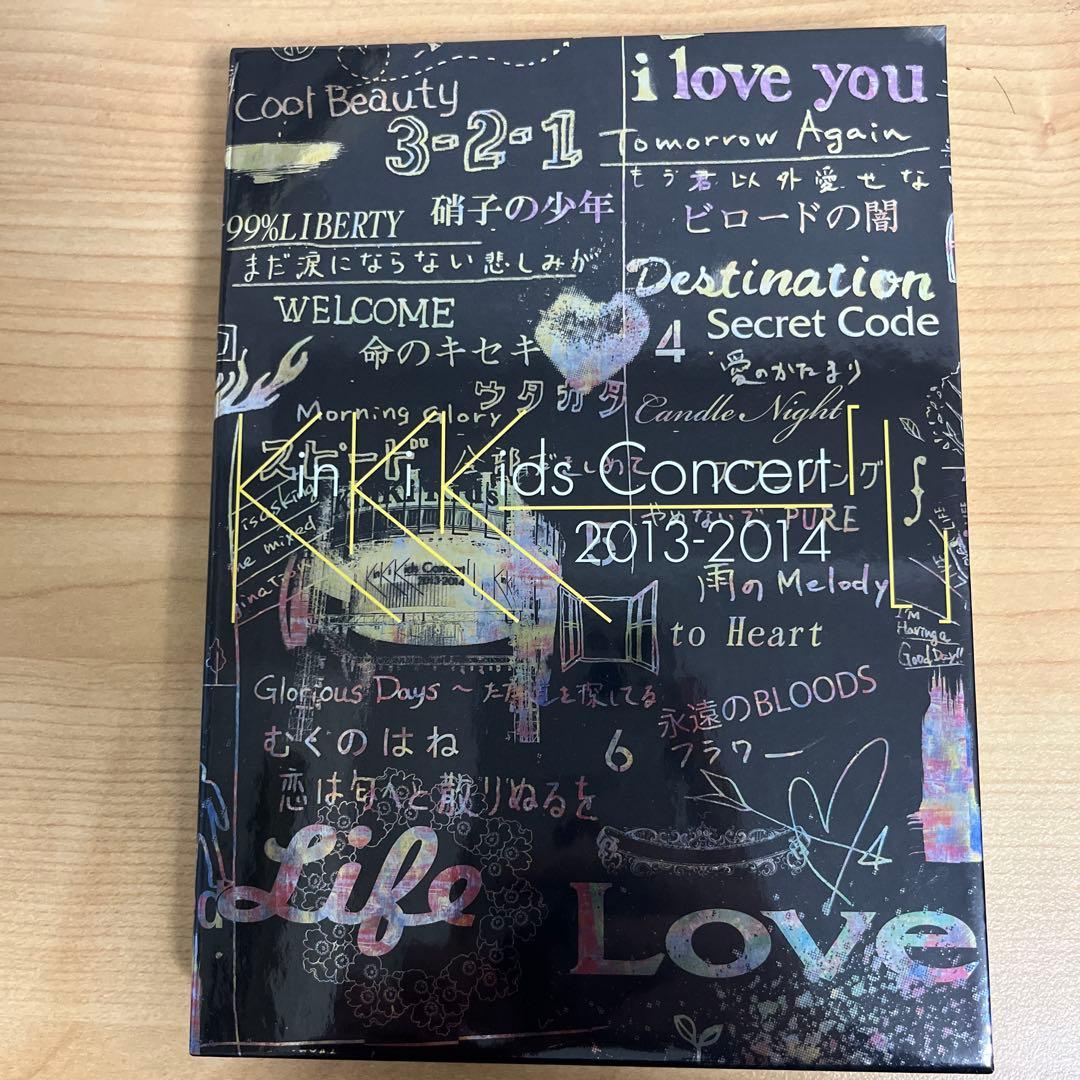 i love you
Cool Beauty
3-2-1
Tomorrow Again
もう君以外愛せな
99%LIBERTY
硝子の少年
ビロードの闇
まだ涙にならない悲しみが
Destination
WELCOME
4
Secret Code
命のキセキ
愛のかたまり
ウタカタ
Morning Glory
Candle Night
スピード
KinKi Kids Concert
2013-2014
やめないで PURE
雨の Melody
KinKi Kids Concert
2013-2014
to Heart
I'm
Having a
Good Day!!
Glorious Days ~ ただ道を探してる
永遠のBLOODS
むくのはね
6
フラワー
恋は匂へと散りぬるを
Life
Love